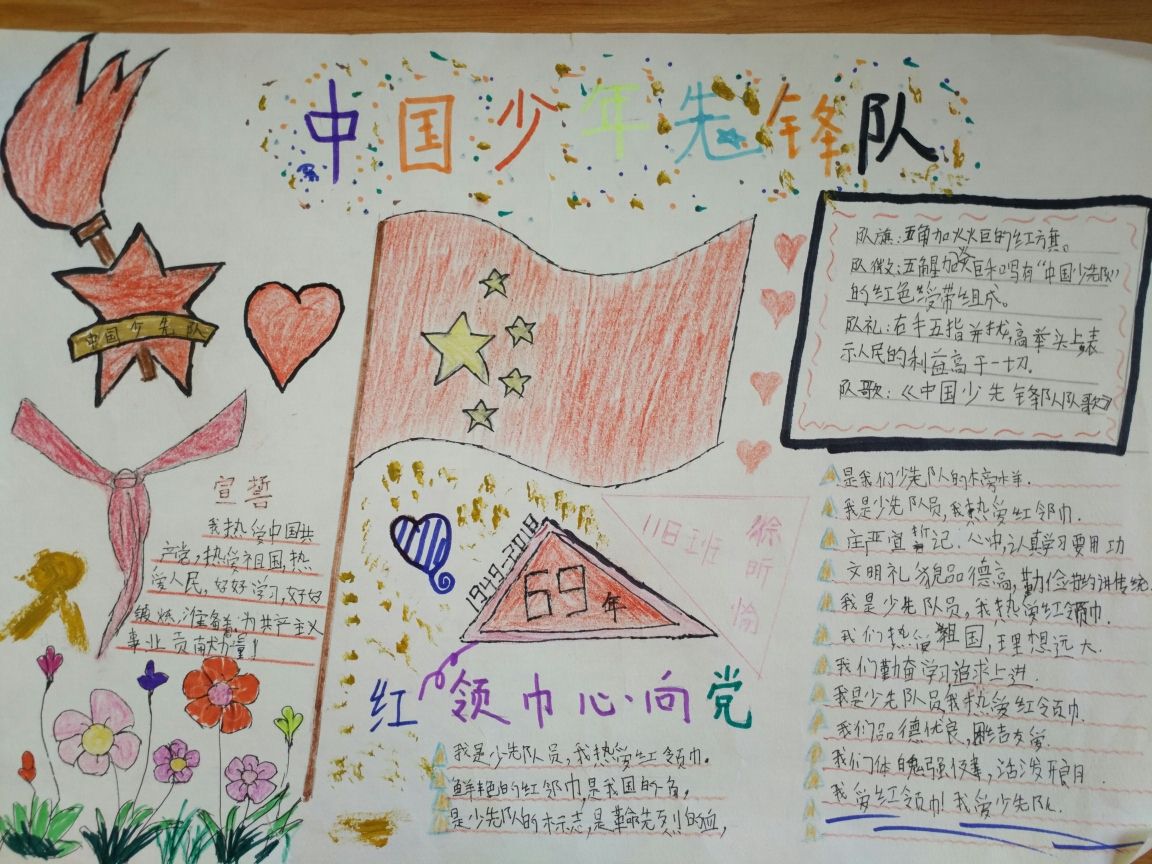 中国少年先锋队
中国少先队
队旗:五角加火火巨的红方旗。
队徽:五角星加火巨和写有“中国少先队”
的红色绶带组成。
队礼:右手五指并拢,高举头上表
示人民的利益高于一切.
队歌:《中国少先锋队队歌》
宣誓
我热爱中国共
产党,热爱祖国,热
爱人民,好好学习,好好
锻炼,准备着:为共产主义
事业贡献力量!
1949-2018
69年
118班
徐
昕
愉
红领巾心·向党
我是少先队员,我热爱红领巾。
鲜艳的红领巾,是我国的角,
是少先队的标志,是革命先烈的血,
是我们少先队的榜样.
我是少先队员,我热爱红领巾.
庄严宣誓记心中,认真学习要用功
文明礼貌品德高,勤俭节约讲传统.
我是少先队员,我热爱红领巾.
我们热爱祖国,理想远大.
我们勤奋学习追求上进.
我是少先队员我热爱红领巾.
我们品德优良,团结友爱.
我们体魄强健,活泼开朗.
我爱红领巾!我爱少先队.